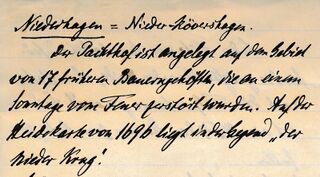 Niederhagen = Nieder-Rövershagen.
Der Pachthof ist angelegt auf dem Gebiet
von 17 früheren Bauerngehöfte, die an einem
Sonntage vom Feuer zerstört wurden. Auf der
Heidekarte von 1696 liegt in der Gegend „der
Nieder Krug".